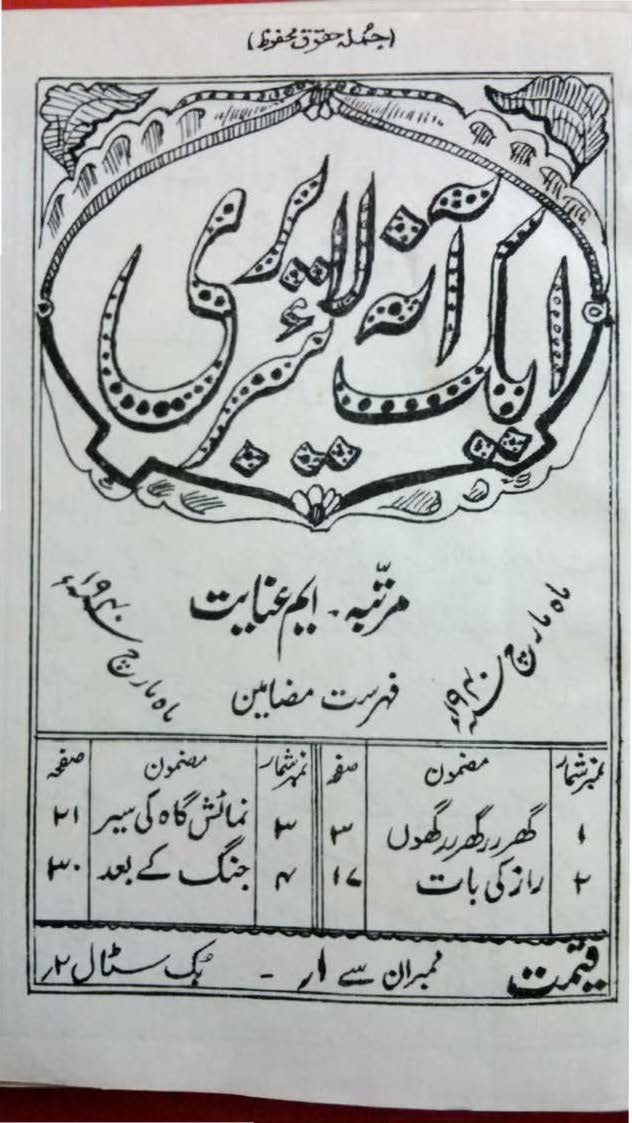 (جُملہ حقوق محفوظ)
ایک آنہ لائبریری
مرتّبہ - ایم عنایت
ماہ مارچ سنہ ۱۹۴۰ء
ماہ مارچ سنہ ۱۹۴۰ء
فہرست مضامین
نمبر شمار مضمون صفحہ نمبر شمار مضمون صفحہ
۱ گھررر گھررر گھوں ۳ ۳ نمائش گاہ کی سیر ۲۱
۲ راز کی بات ۱۷ ۴ جنگ کے بعد ۳۰
قیمت ممبران سے ۱ر - بُک سٹال ۲ر